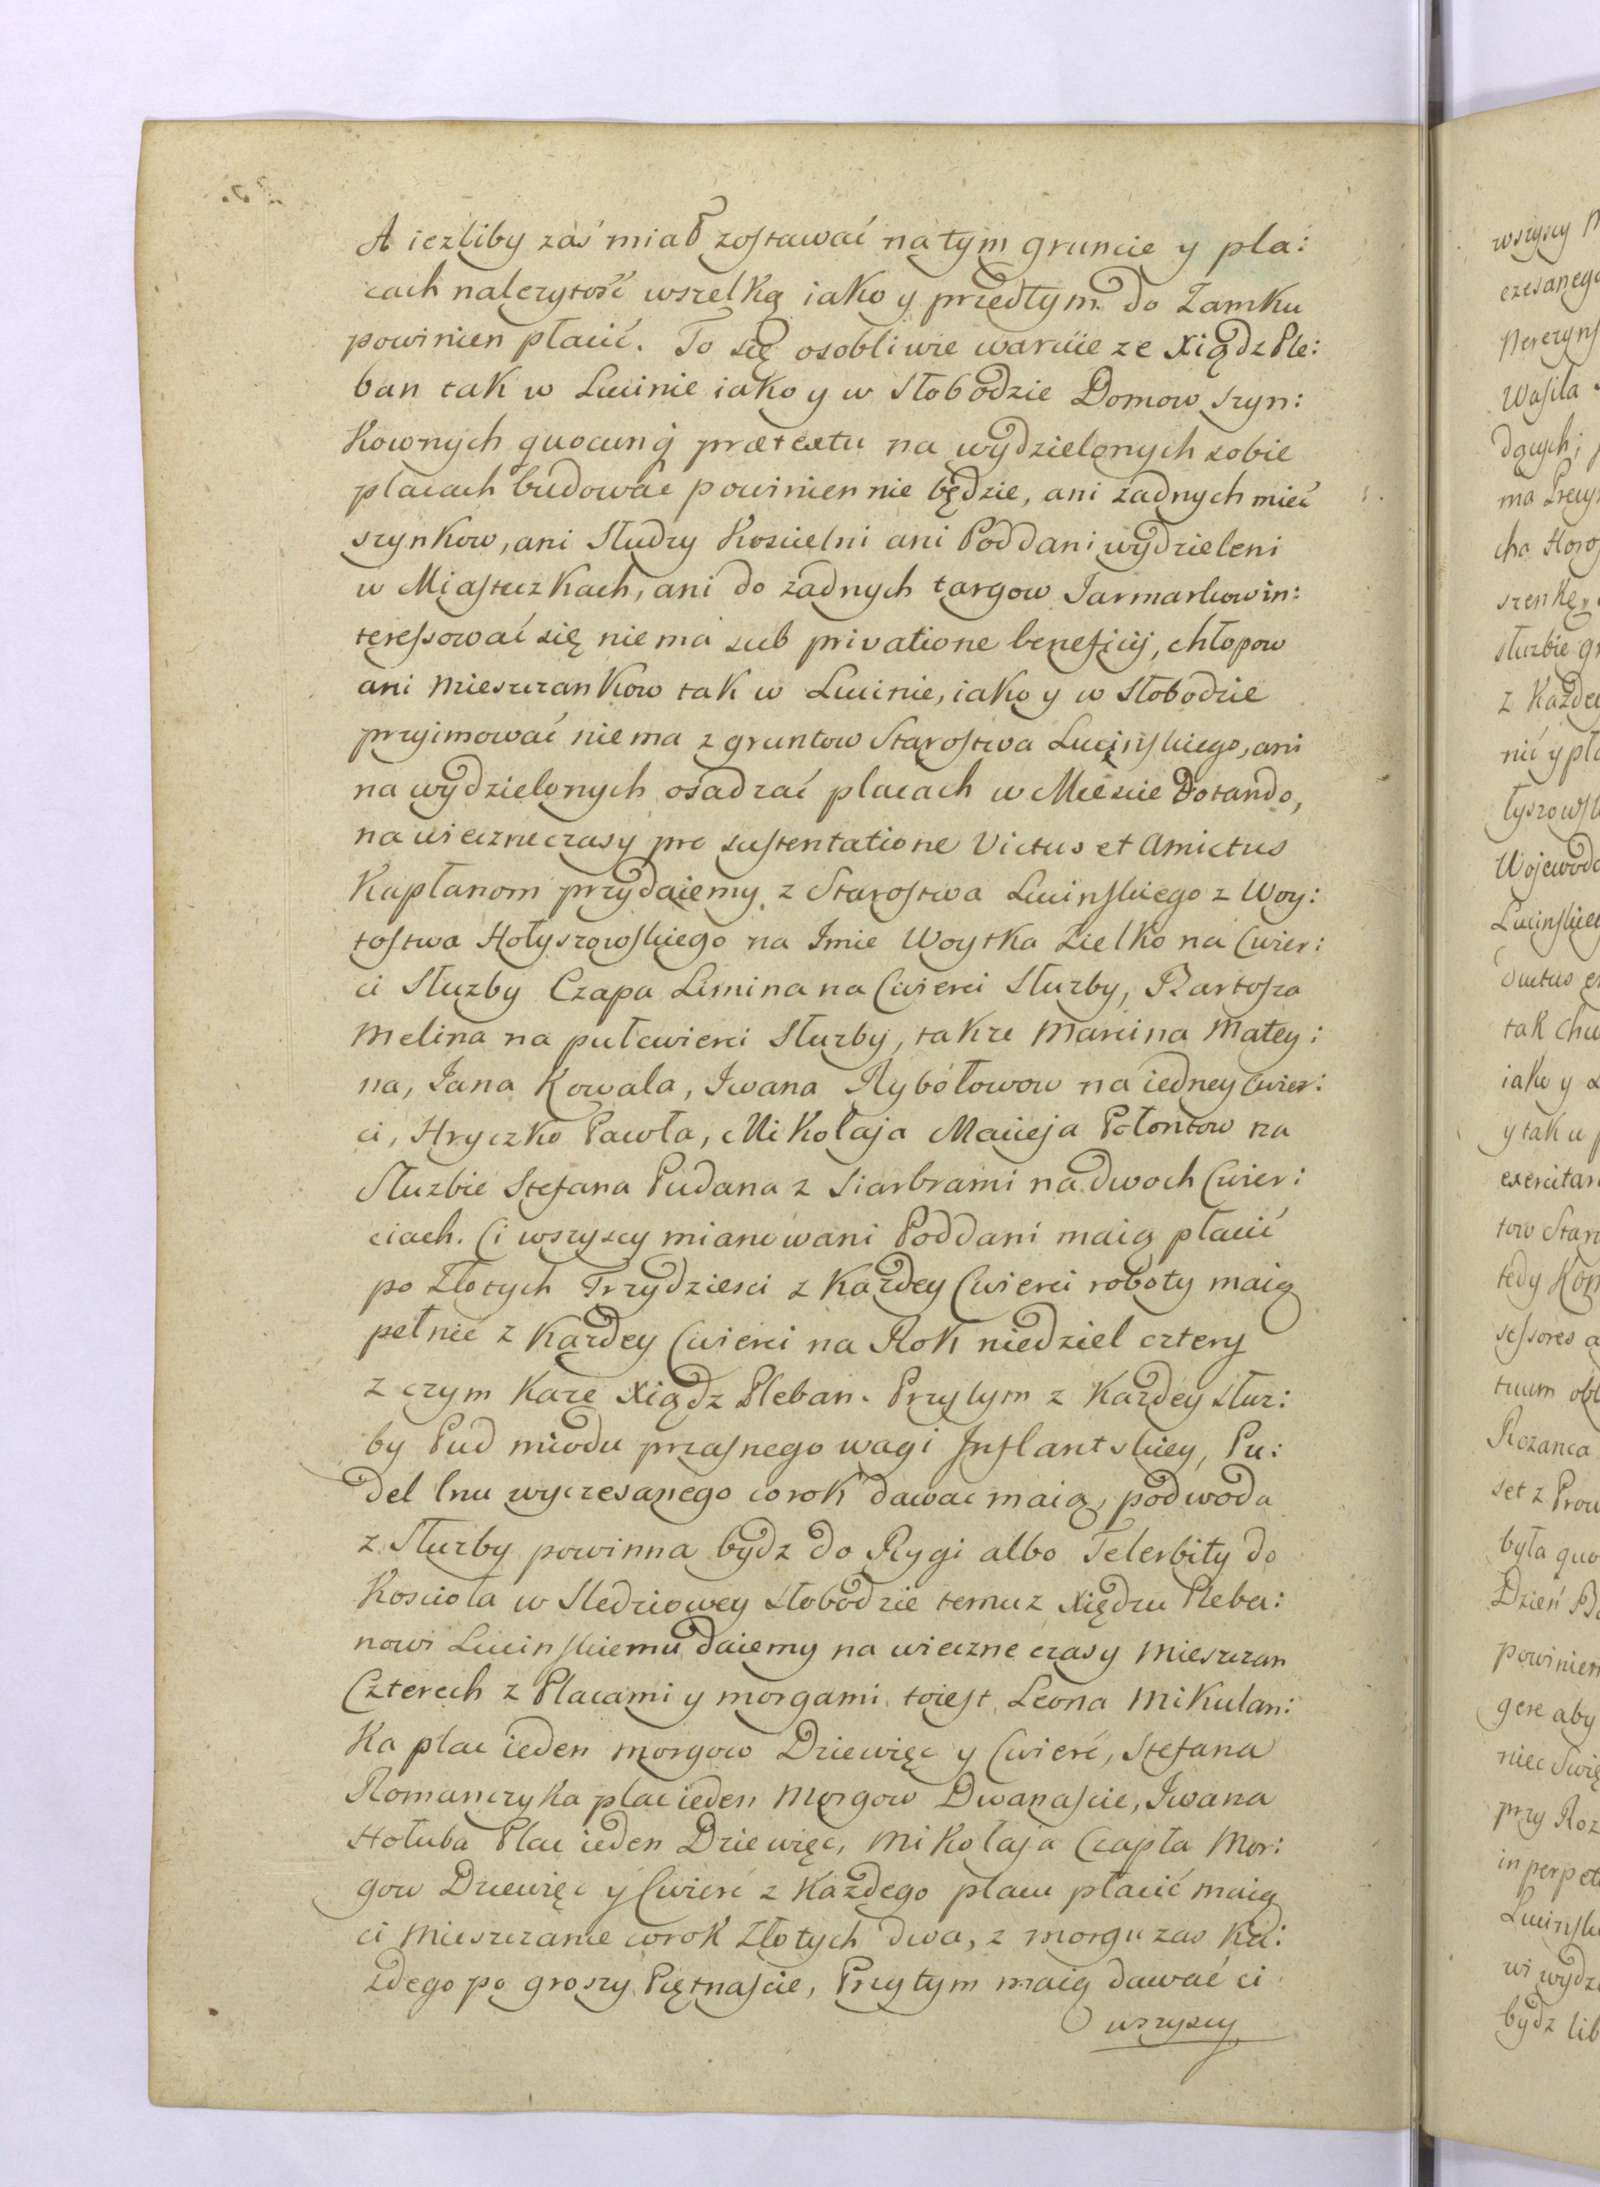 A iezliby zaś miał zostawać na tym gruncie y pla:
cach nalezytość wszelką iako y przedtym do Zamku
powinien płacić. To się osobliwie waruie ze Xiądz Ple:
ban tak w Lucinie iako y w Słobodzie Domow szyn:
kownych quocunq prætextu na wydzielonych sobie
placach budować powinien nie będzie, ani zadnych mieć
szynkow, ani Słudzy Koscielni ani Poddani wydzieleni
w Miasteczkach, ani do zadnych targow Jarmarkow in:
teressować się nie ma sub privatione beneficij, chłopow
ani Mieszczankow tak w Lucinie, iako y w Słobodzie
przyimować nie ma z gruntow Starostwa Lucinskiego, ani
na wydzielonych osadzać placach w Mieście Dotando,
na wieczne czasy pro sustentatione Victus et Amictus
Kapłanom przydaiemy z Starostwa Lucinskiego z Woy:
tostwa Hołyszowskiego na Imie Woytka Zielko na Cwier:
ci Służby Czapa Limina na Cwierci Służby, Bartosza
Melina na pułcwierci Służby, takze Marcina Matey:
na, Jana Kowala, Iwana Rybółowow na iedney Cwier:
ci, Hryczko Pawła, Mikołaja Macieja Połontow na
Służbie Stefana Pudana z Siarbrami na dwoch Cwier:
ciach. Ci wszyscy mianowani Poddani maią płacić
po Złotych Trzydziesci z Kazdey Cwierci roboty maią
pełnić z Kazdey Cwierci na Rok niedziel cztery
z czym Kaze Xiądz Pleban. Przytym z Kazdey słuz:
by Pud miodu przasnego wagi Inflantskiey, Pu:
del lnu wyczesanego co rok dawac maią, podwoda
z Służby powinna bydz do Rygi albo Telerbity do
Kosciola w Sledziowey Słobodzie temuz Xiędzu Pleba:
nowi Lucinskiemu daiemy na wieczne czasy Mieszczan
Czterech z Placami y morgami toiest Leona Mikulan:
ka plac ieden morgow Dziewięc y Cwierć, Stefana
Romanczyka plac ieden Morgow Dwanascie, Iwana
Hołuba Plac ieden Dziewięc, Mikołaja Czapła Mor:
gow Dziewięc y Cwierć z Każdego placu płacić maią
ci Mieszczanie co rok Złotych dwa, z morgu zas Ka:
zdego po groszy Piętnascie, Przytym maią dawać ci
wszyscy